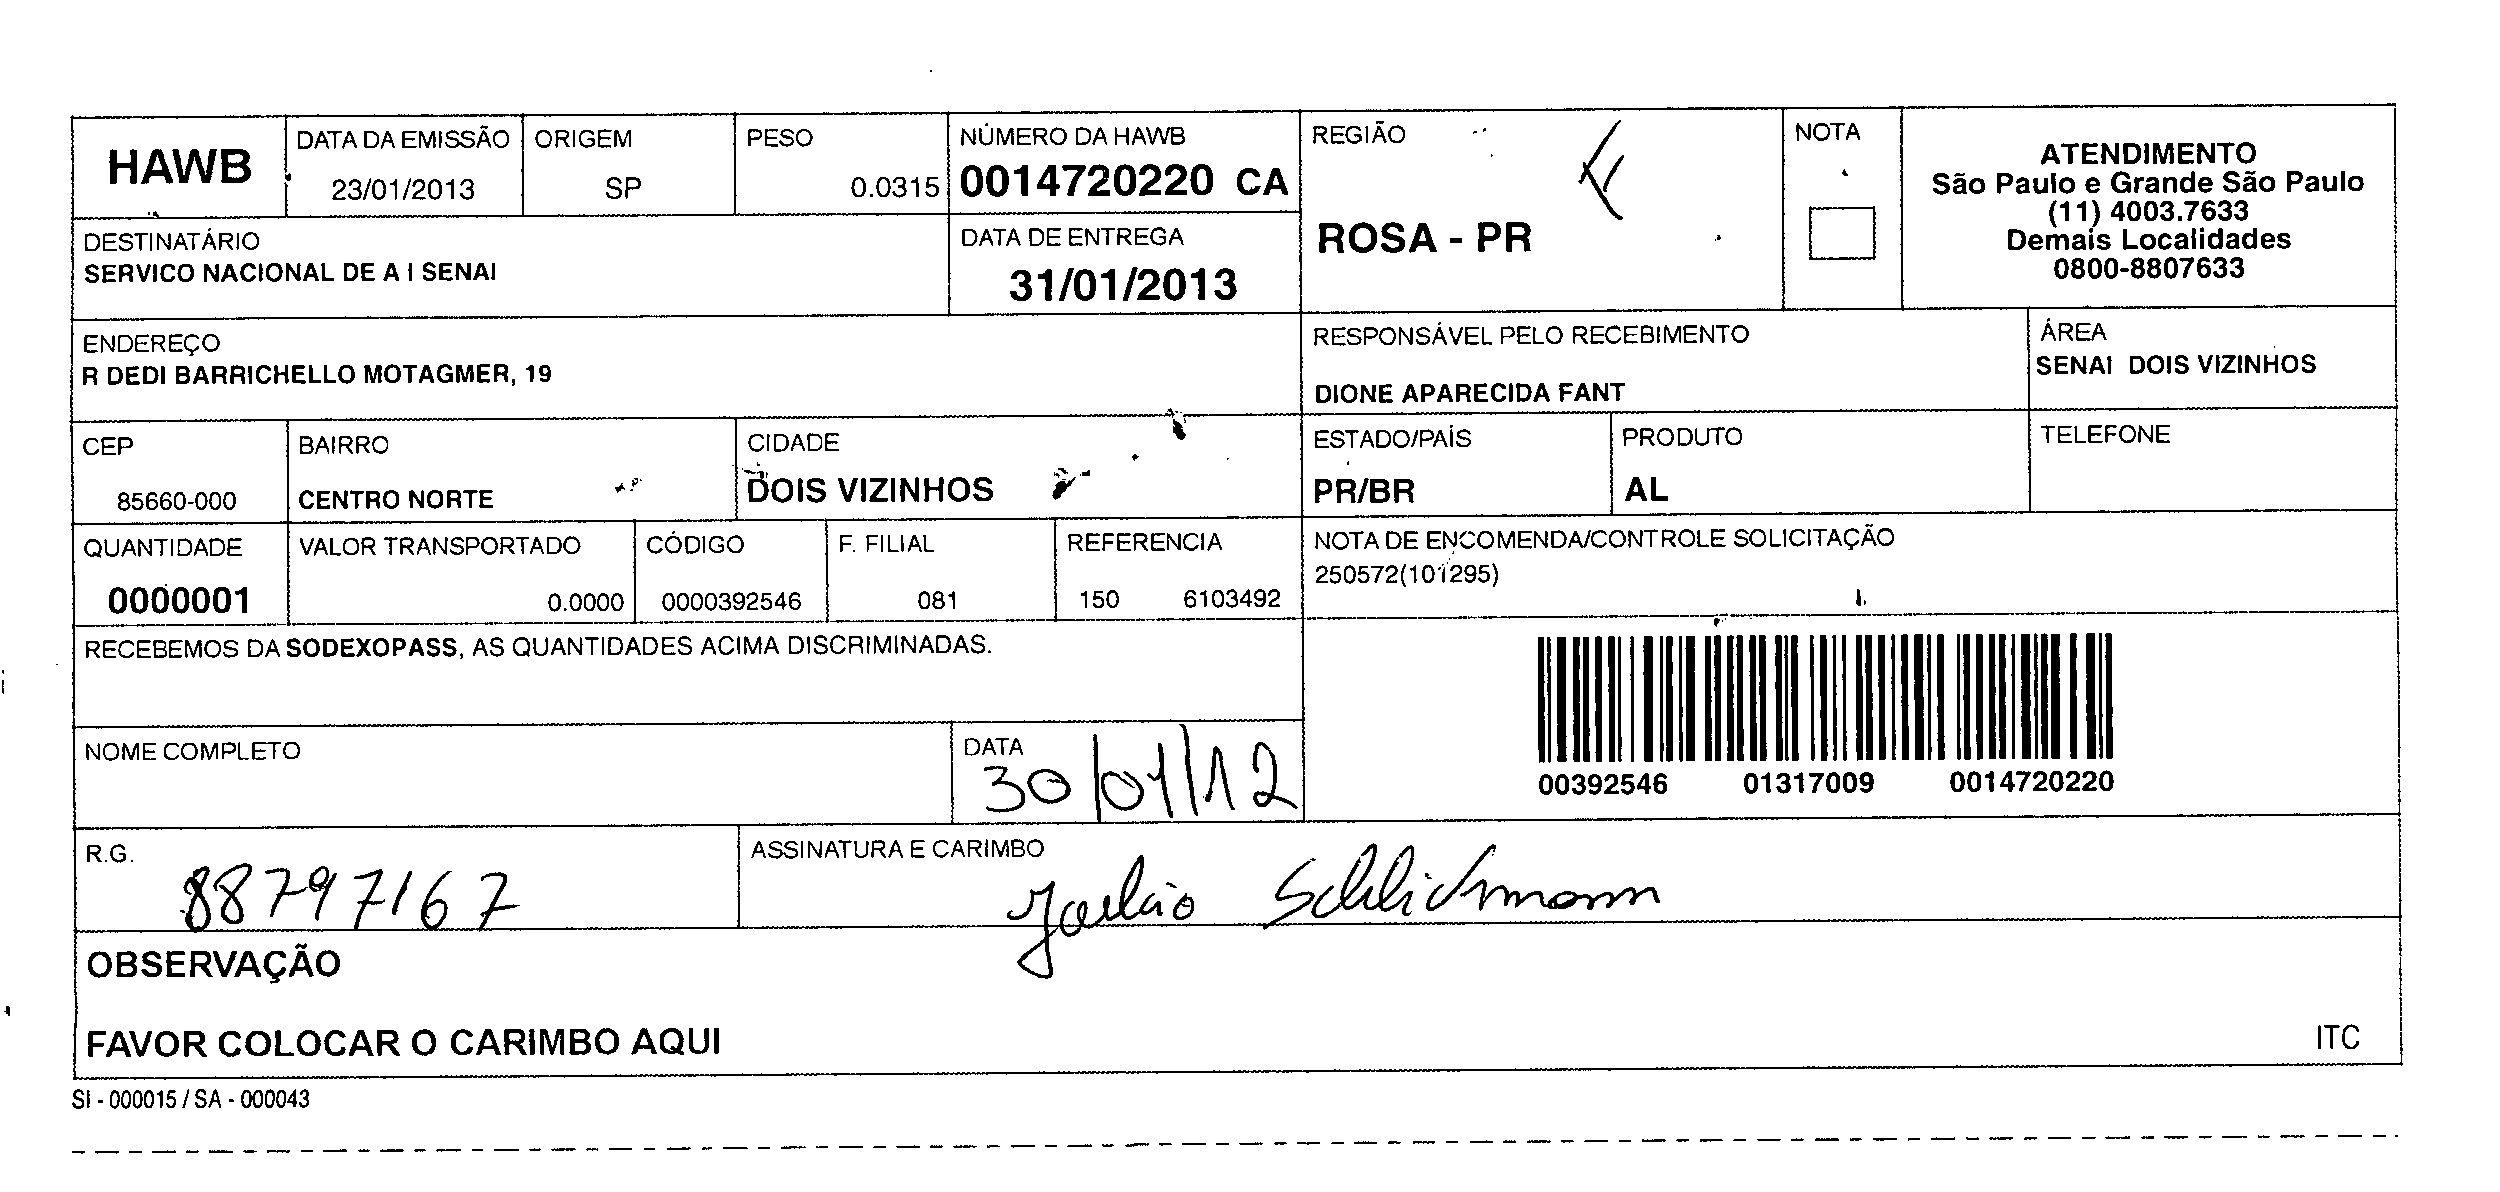 HAWB
DATA DA EMISSÃO
23/01/2013
ORIGEM
SP
PESO
0.0315
NÚMERO DA HAWB
0014720220 CA
REGIÃO
ROSA - PR
NOTA
ATENDIMENTO
São Paulo e Grande São Paulo
(11) 4003.7633
Demais Localidades
0800-8807633
DESTINATÁRIO
SERVICO NACIONAL DE A I SENAI
DATA DE ENTREGA
31/01/2013
ENDEREÇO
R DEDI BARRICHELLO MOTAGMER, 19
RESPONSÁVEL PELO RECEBIMENTO
DIONE APARECIDA FANT
ÁREA
SENAI DOIS VIZINHOS
CEP
85660-000
BAIRRO
CENTRO NORTE
CIDADE
DOIS VIZINHOS
ESTADO/PAÍS
PR/BR
PRODUTO
AL
TELEFONE
QUANTIDADE
0000001
VALOR TRANSPORTADO
0.0000
CÓDIGO
0000392546
F. FILIAL
081
REFERENCIA
150 6103492
NOTA DE ENCOMENDA/CONTROLE SOLICITAÇÃO
250572(101295)
RECEBEMOS DA SODEXOPASS, AS QUANTIDADES ACIMA DISCRIMINADAS.
00392546 01317009 0014720220
NOME COMPLETO
DATA
30/01/12
R.G.
88797167
ASSINATURA E CARIMBO
Schlichmann
OBSERVAÇÃO
FAVOR COLOCAR O CARIMBO AQUI
ITC
SI - 000015 / SA - 000043